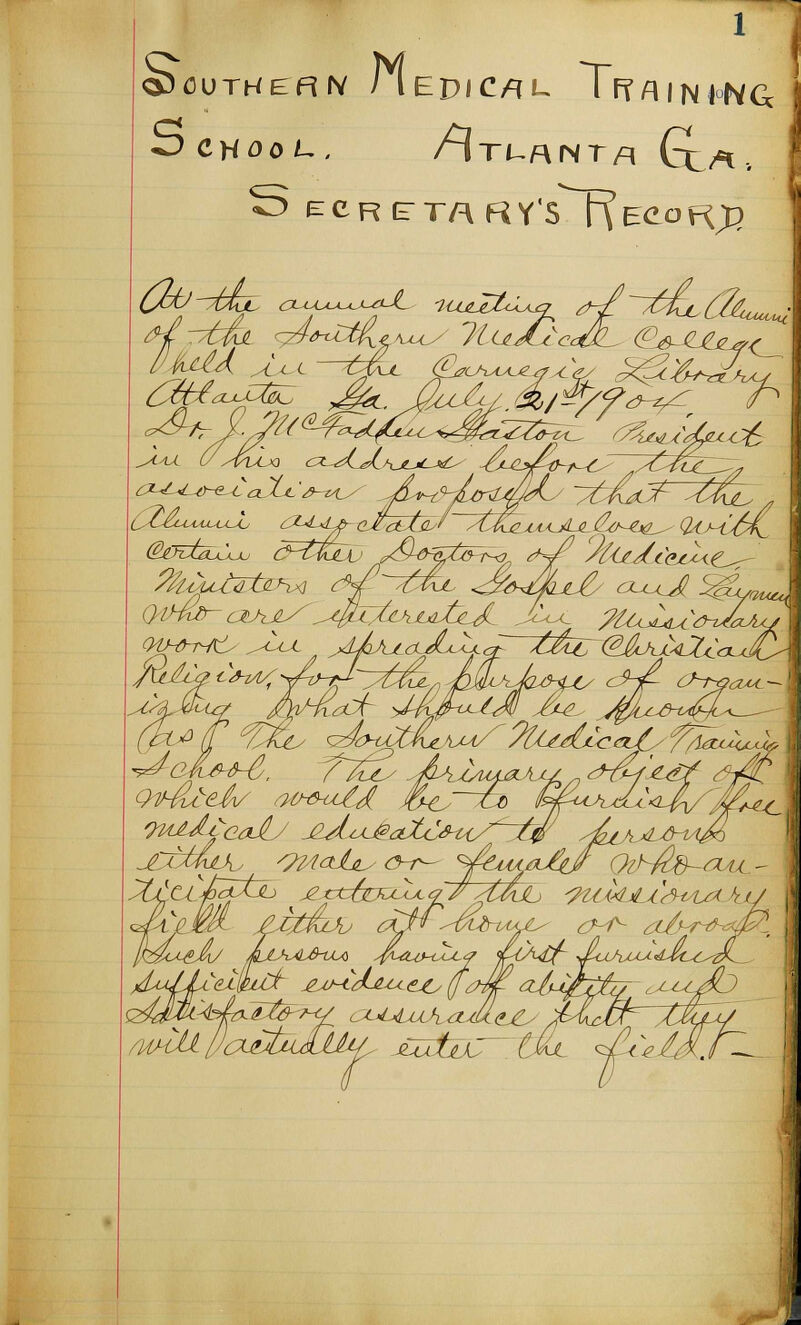 1
Southern Medical Training
School. Atlanta Ga.
Secretary's Record.
At the annual meeting of the Alumni
of the Southern Medical College
held in the Carnegie Library
Atlanta Ga. July. 21st 1904.
Dr. J. McFadden Gaston President
in his address before the
association proposed that the
Alumni associate themselves with
Certain other Doctors of Medicine
Ministers of the Gospel and Laymen
who are interested in Missionary
work in spreading the Christian
Religion, for the purpose of organ-
izing what should be known
as The Southern Medical Training
School. The primary object of
which would be to furnish free
medical education to persons
either male or female who an-
ticipate entering the missionary
field either at home or abroad.
Such persons having first furnished
sufficient evidence of ability and
satisfactory assurance that they
will actually enter the field. —